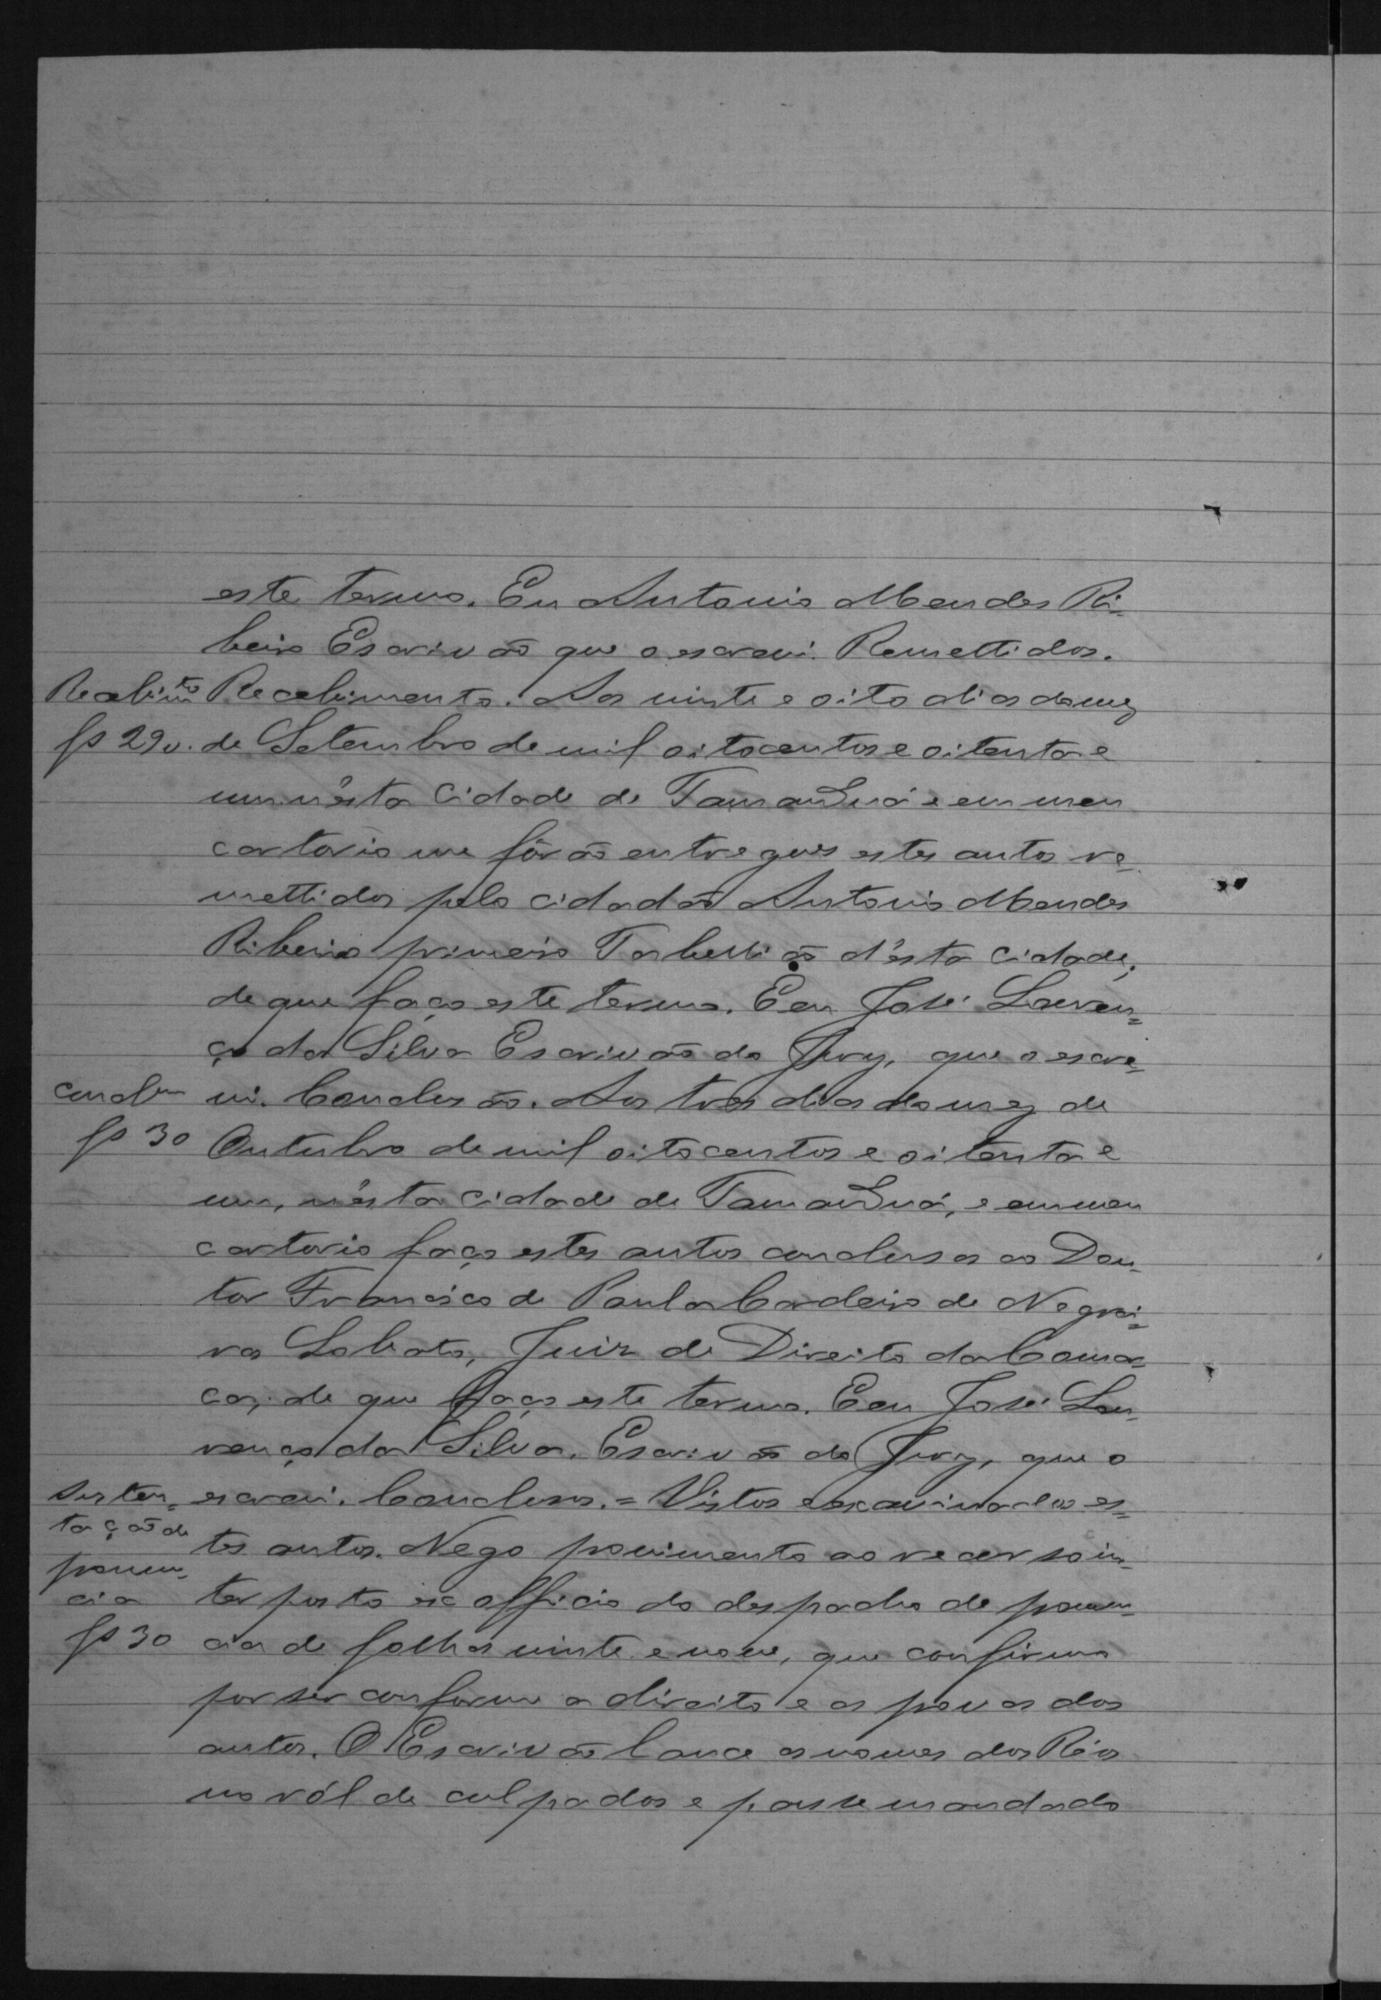 este termo. Eu Antonio Mendes Ri-
beiro Escrivão que o escrevi. Remettidos.
Recebim.to Recebimento. Aos vinte e oito dias do mez
fs 29v. de Setembro de mil oitocentos e oitenta e
um n'ésta Cidade de Tamanduá e em meu
cartorio me fôrão entregues estes autos re-
mettidos pelo cidadão Antonio Mendes
Ribeiro primeiro Tabellião d'ésta Cidade,
de que faço este termo. Eeu José Louren=
ço da Silva Escrivão do Jury, que o escre-
concl.m vi. Conclusão. Aos tres dias do mez de
fs 30 Outubro de mil oitocentos e oitenta e
um, n'ésta cidade de Tamanduá, e em meu
cartorio faço estes autos conclusos ao Dou-
tor Francisco de Paula Cordeiro de Negrei=
ros Lobato, Juiz de Direito da Comar=
ca, de que faço este termo. Eeu José Lou-
renço da Silva. Escrivão do Jury, que o
susten= escrevi. Conclusos. = Vistos e examinados es=
tação de tes autos. Nego provimento ao recurso in-
pronun-
cia terposto ex officio do despacho de pronun=
fs 30 cia de folhas vinte e nove, que confirmo
por ser conforme a direito e as provas dos
autos. O Escrivão lance os nomes dos Réos
no ról de culpados e passe mandado